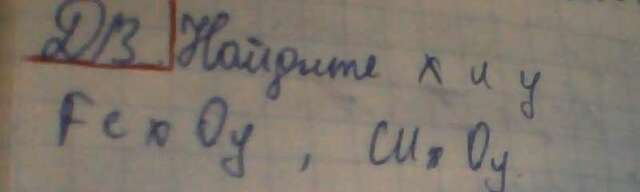 ДЗ Найдите x и y
FexOy, CuxOy